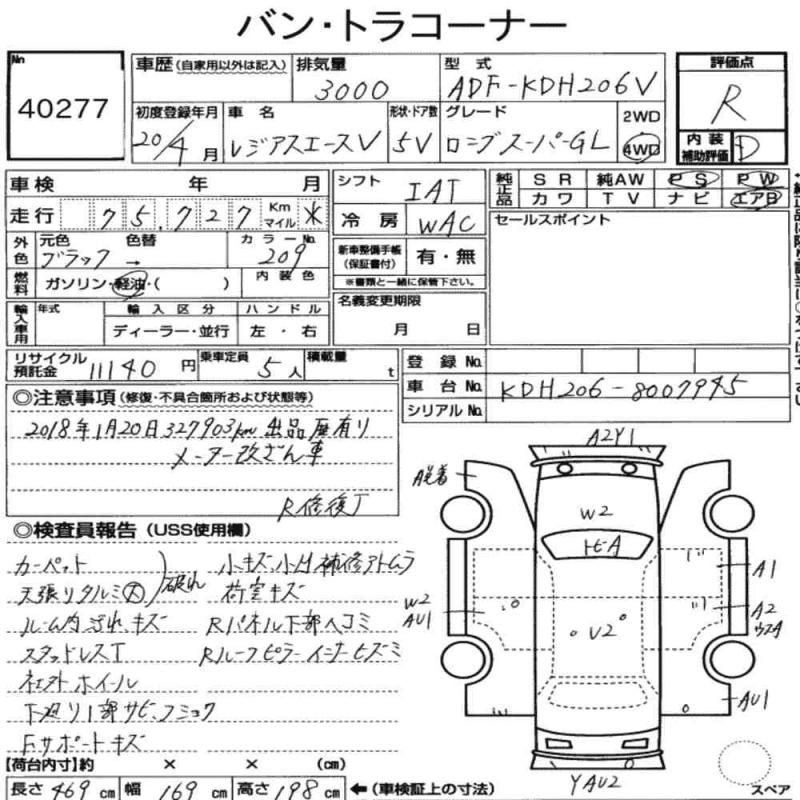 バン・トラコーナー
No 40277
車歴 (自家用以外は記入)
排気量 3000
型式 ADF-KDH206V
評価点 R
初度登録年月 20/4月
車名 レジアスエースV
形状・ドア数 5V
グレード ロングスーパーGL
2WD
4WD
内装補助評価 D
車検 年 月
走行 75,727 Km マイル ※
外色 元色 ブラック 色替 → カラーNo. 209
燃料 ガソリン・軽油・( ) 内装色
輸入車用 年式 輸入区分 ディーラー・並行 ハンドル 左・右
シフト IAT
冷房 WAC
新車整備手帳 (保証書付) 有・無
※書類と一緒に保管下さい。
名義変更期限 月 日
純正品 SR 純AW PS PW
カワ TV ナビ エアB
セールスポイント
リサイクル預託金 11140 円 乗車定員 5人 積載量 t
登録No.
車台No. KDH206-8007945
シリアルNo.
◎注意事項 (修復・不具合箇所および状態等)
2018年1月20日 327903km 出品歴有り
メーター改ざん車
R修復了
◎検査員報告 (USS使用欄)
カーペット
天張りタルミ(大) 破れ
ルーム内汚れキズ
スタッドレスT
社外ホイール
下廻り1部サビ、フショク
Fサポートキズ
小キズ小凹補修アトムラ
荷室キズ
Rパネル下部ヘコミ
Rルーフピラーインナーヒズミ
A2Y1
W2
トビA
W2
AU1
A1
A2
U2
AU1
YAU2
スペア
【荷台内寸】約 × × (cm)
長さ 469 cm 幅 169 cm 高さ 198 cm ←(車検証上の寸法)